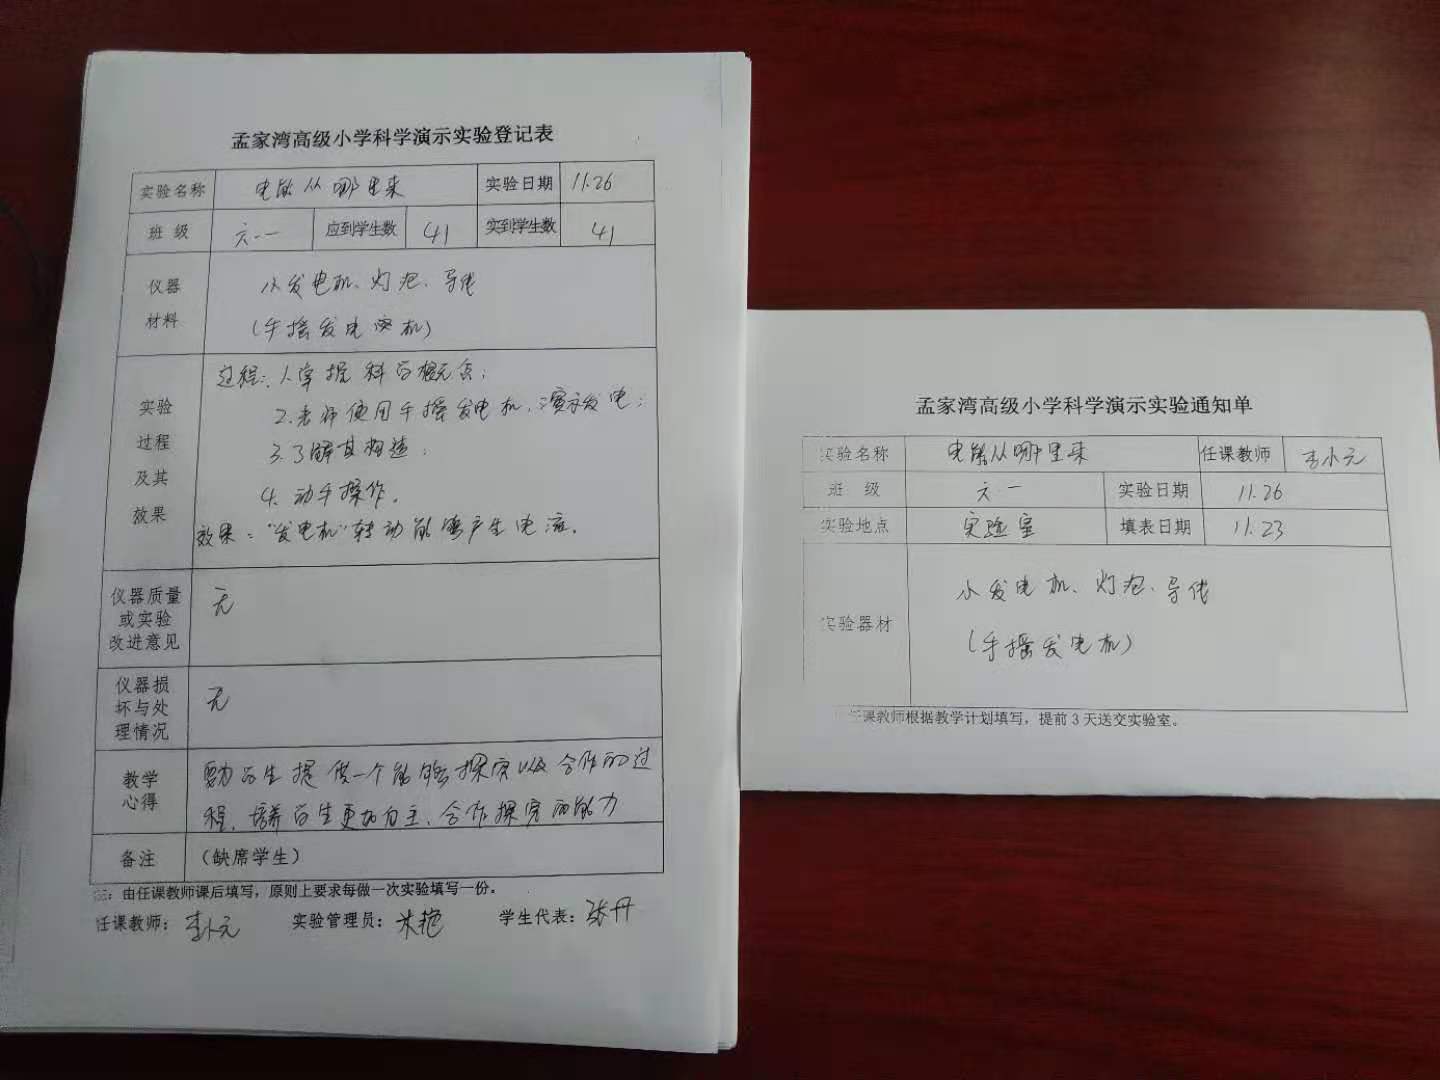 孟家湾高级小学科学演示实验登记表
实验名称 电能从哪里来 实验日期 11.26
班 级 六.一 应到学生数 41 实到学生数 41
仪器
材料
小发电机、灯泡、导线
(手摇发电机)
实验
过程
及其
效果
过程: 1.掌握科学概念;
2.老师使用手摇发电机,演示发电;
3.了解其构造;
4.动手操作。
效果:"发电机"转动能够产生电流。
仪器质量
或实验
改进意见
无
仪器损
坏与处
理情况
无
教学
心得
学生提供一个能够探究以及合作的过
程,培养学生更加自主、合作探究的能力
备注 (缺席学生)
注:由任课教师课后填写,原则上要求每做一次实验填写一份。
任课教师: 李小元 实验管理员: 朱艳 学生代表: 张丹
孟家湾高级小学科学演示实验通知单
实验名称 电能从哪里来 任课教师 李小元
班 级 六.一 实验日期 11.26
实验地点 实验室 填表日期 11.23
实验器材
小发电机、灯泡、导线
(手摇发电机)
任课教师根据教学计划填写,提前3天送交实验室。